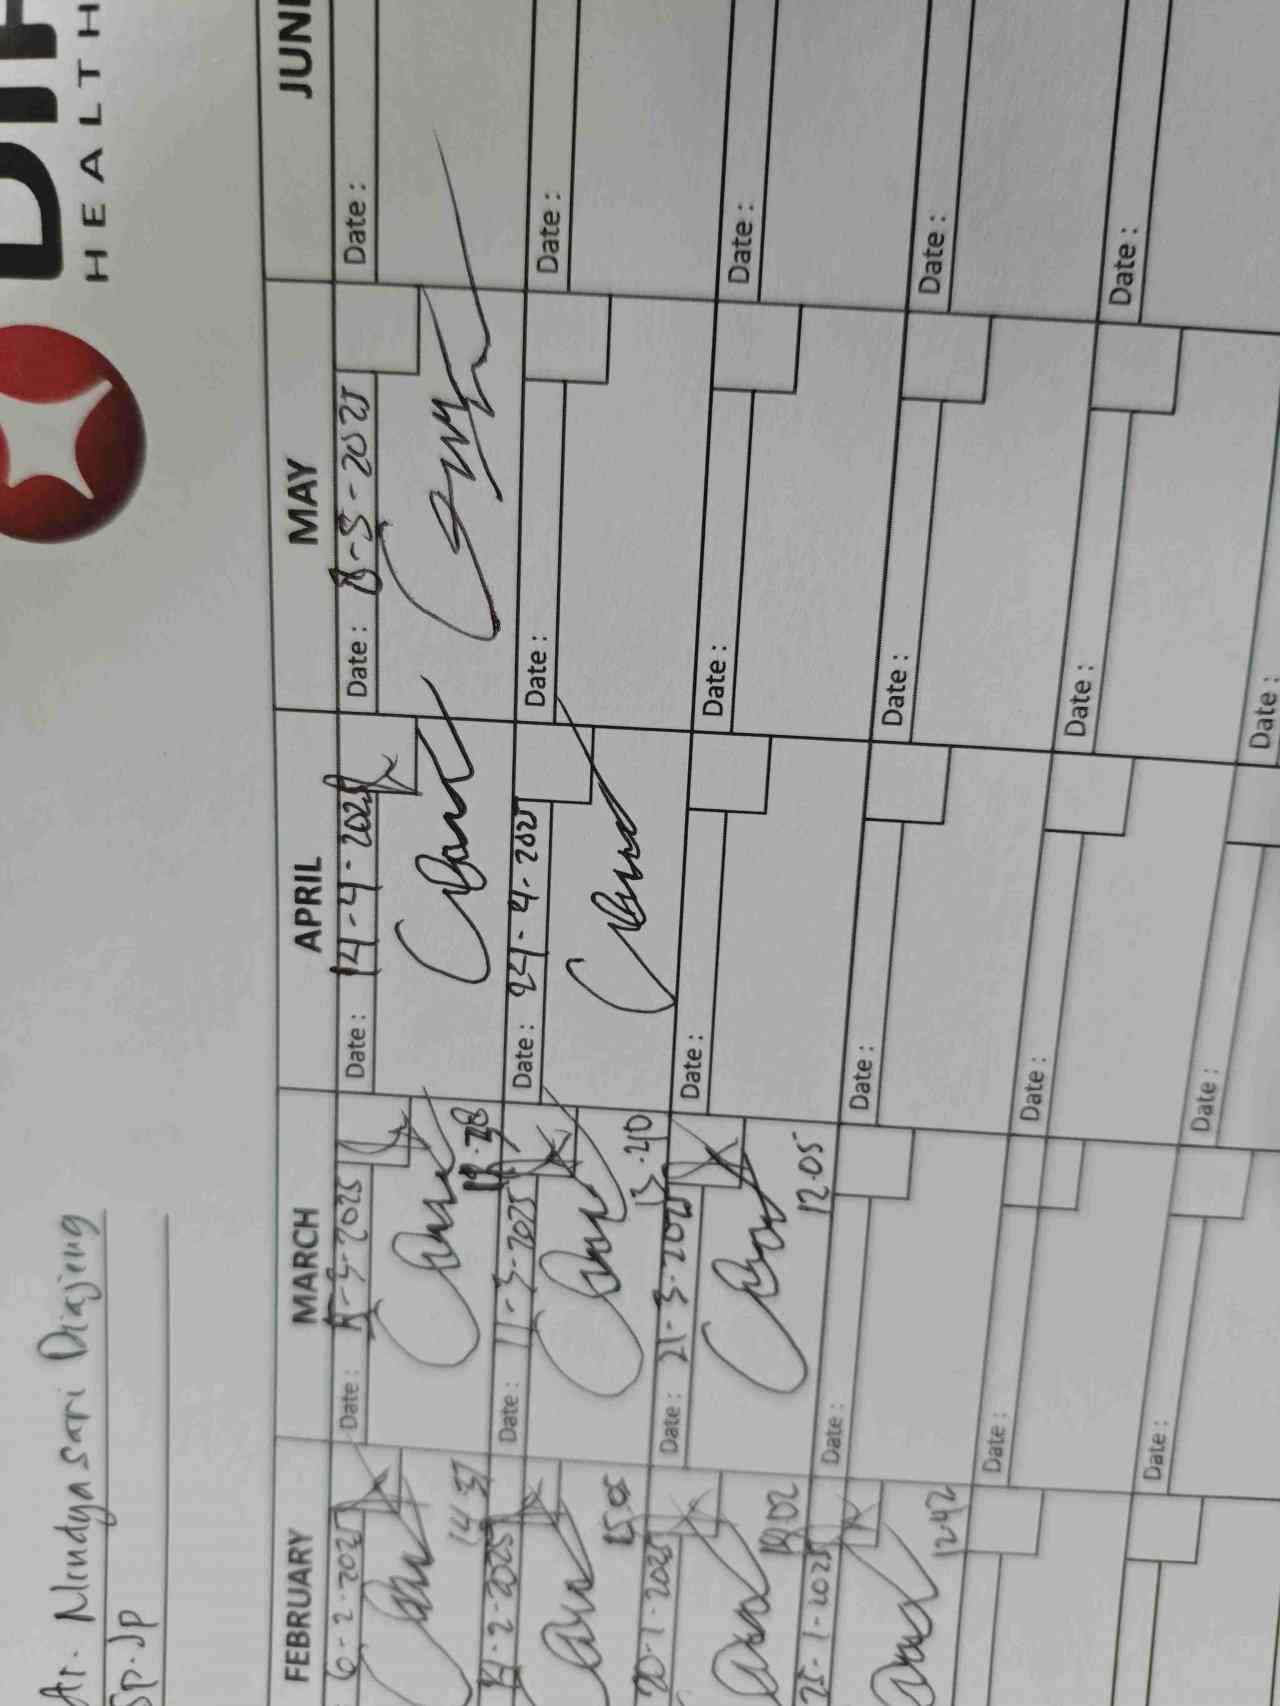 HEALTH
dr. Nindya Sari Diajeng
Sp.JP
FEBRUARY MARCH APRIL MAY JUNE
6-2-2025 Date: Date: 14-4-2025 Date: 8-5-2025 Date:
14 37
-2-2025 Date: 11-3-2025 Date: 24-4-2025 Date: Date:
13.40
20-1-2025 Date: 21-3-2025 Date: Date: Date:
14.02 12.05
25-1-2025 Date: Date: Date: Date:
12.42
Date: Date: Date: Date:
Date: Date: Date: